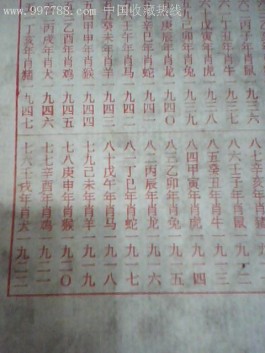 www.997788.com 中国收藏热线
丙子年肖鼠一九三六
丑年肖牛一九三七
寅年肖虎一九三八
卯年肖兔一九三九
辰年肖龙一九四〇
巳年肖蛇一九四一
午年肖马一九四二
癸未年肖羊一九四三
甲申年肖猴一九四四
乙酉年肖鸡一九四五
丙戌年肖犬一九四六
丁亥年肖猪一九四七
八七辛亥年肖
八六壬子年肖鼠一九一二
八五癸丑年肖牛一九一三
八四甲寅年肖虎一九一四
八三乙卯年肖兔一九一五
八二丙辰年肖龙一九一六
八一丁巳年肖蛇一九一七
八十戊午年肖马一九一八
七九己未年肖羊一九一九
七八庚申年肖猴一九二〇
七七辛酉年肖鸡一九二一
七六壬戌年肖犬一九二二